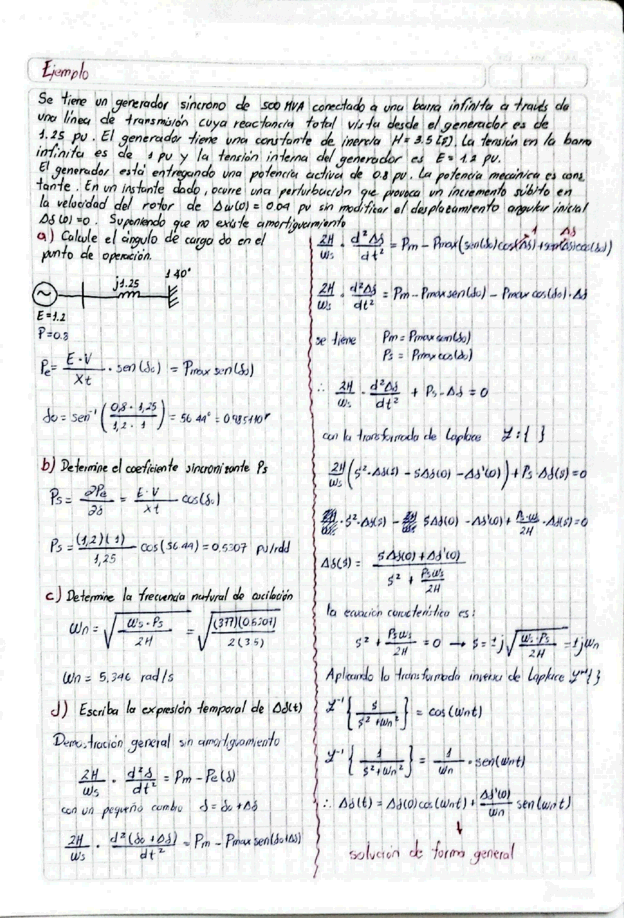 Ejemplo
Se tiene un generador síncrono de 500 MVA conectado a una barra infinita a través de
una línea de transmisión cuya reactancia total vista desde el generador es de
1.25 pu. El generador tiene una constante de inercia H = 3.5 [s]. La tensión en la barra
infinita es de 1 pu y la tensión interna del generador es E = 1.2 pu.
El generador está entregando una potencia activa de 0.8 pu. La potencia mecánica es cons
tante. En un instante dado, ocurre una perturbación que provoca un incremento súbito en
la velocidad del rotor de Δω(0) = 0.04 pu sin modificar el desplazamiento angular inicial
Δδ(0) = 0. Suponiendo que no existe amortiguamiento
a) Calcule el ángulo de cargo δo en el
punto de operación.
j1.25
1∠0°
E=1.2
P=0.8
Pe = E·V/Xt · sen(δo) = Pmax sen(δo)
δo = sen⁻¹(0,8·1,25/1,2·1) = 56.44° = 0.98511
b) Determine el coeficiente sincronizante Ps
Ps = ∂Pe/∂δ = E·V/Xt cos(δo)
Ps = (1,2)(1)/1,25 cos(56.44) = 0,5307 pu/rad
c) Determine la frecuencia natural de oscilación
ωn = √(ωs·Ps/2H) = √((377)(0.5307)/2(3.5))
ωn = 5,346 rad/s
d) Escriba la expresión temporal de Δδ(t)
Demostración general sin amortiguamiento
2H/ωs · d²δ/dt² = Pm - Pe(δ)
con un pequeño cambio δ = δo + Δδ
2H/ωs · d²(δo + Δδ)/dt² = Pm - Pmax sen(δo+Δδ)
1 Δδ
2H/ωs · d²Δδ/dt² = Pm - Pmax(sen(δo)cos(Δδ) + sen(Δδ)cos(δo))
2H/ωs · d²Δδ/dt² = Pm - Pmax sen(δo) - Pmax cos(δo)·Δδ
se tiene Pm = Pmax sen(δo)
Ps = Pmax cos(δo)
∴ 2H/ωs · d²Δδ/dt² + Ps·Δδ = 0
con la transformada de Laplace ℒ:{ }
2H/ωs (s²·Δδ(s) - sΔδ(0) - Δδ'(0)) + Ps·Δδ(s) = 0
2H/ωs · s²·Δδ(s) - 2H/ωs sΔδ(0) - Δδ'(0) + Ps·ωs/2H · Δδ(s) = 0
Δδ(s) = sΔδ(0) + Δδ'(0) / s² + Psωs/2H
la ecuación característica es:
s² + Psωs/2H = 0 → s = ±j√(ωs·Ps/2H) = ±jωn
Aplicando la transformada inversa de Laplace ℒ⁻¹{ }
ℒ⁻¹{s/s²+ωn²} = cos(ωnt)
ℒ⁻¹{1/s²+ωn²} = 1/ωn · sen(ωnt)
∴ Δδ(t) = Δδ(0)cos(ωnt) + Δδ'(0)/ωn sen(ωnt)
↓
solución de forma general